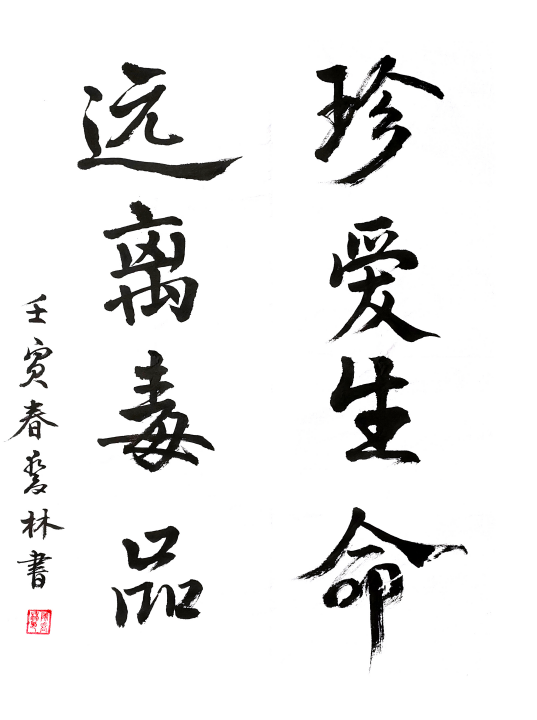 珍爱生命
远离毒品
壬寅春发林书